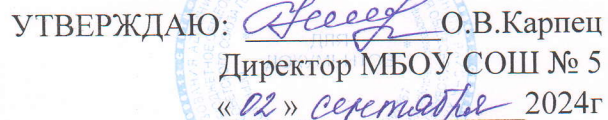 УТВЕРЖДАЮ: О.В.Карпец
Директор МБОУ СОШ № 5
« 02 » сентября 2024г